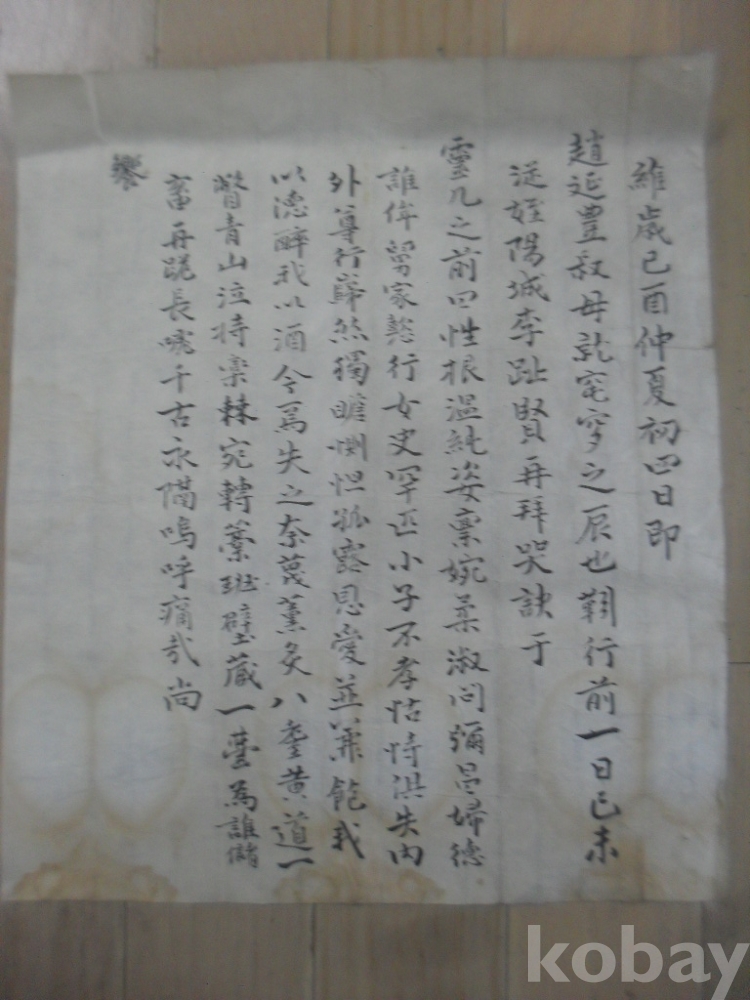 維歲己酉仲夏初四日即
趙延豊叔母就窀穸之辰也靷行前一日己未
從姪陽城李趾賢再拜哭訣于
靈几之前曰性根溫純姿稟婉柔淑問彌昌婦德
誰侔留家懿行女史罕匹小子不孝怙恃洪失內
外尊行巋然獨瞻惻怛孤露恩愛並篤飽我
以德醉我以酒今焉失之奈蔑薰炙八耋黃道一
瞥青山泣持欒棘宛轉藁班璧藏一臺為誰儲
畜再跽長噦千古永隔嗚呼痛哉尚
饗
kobay